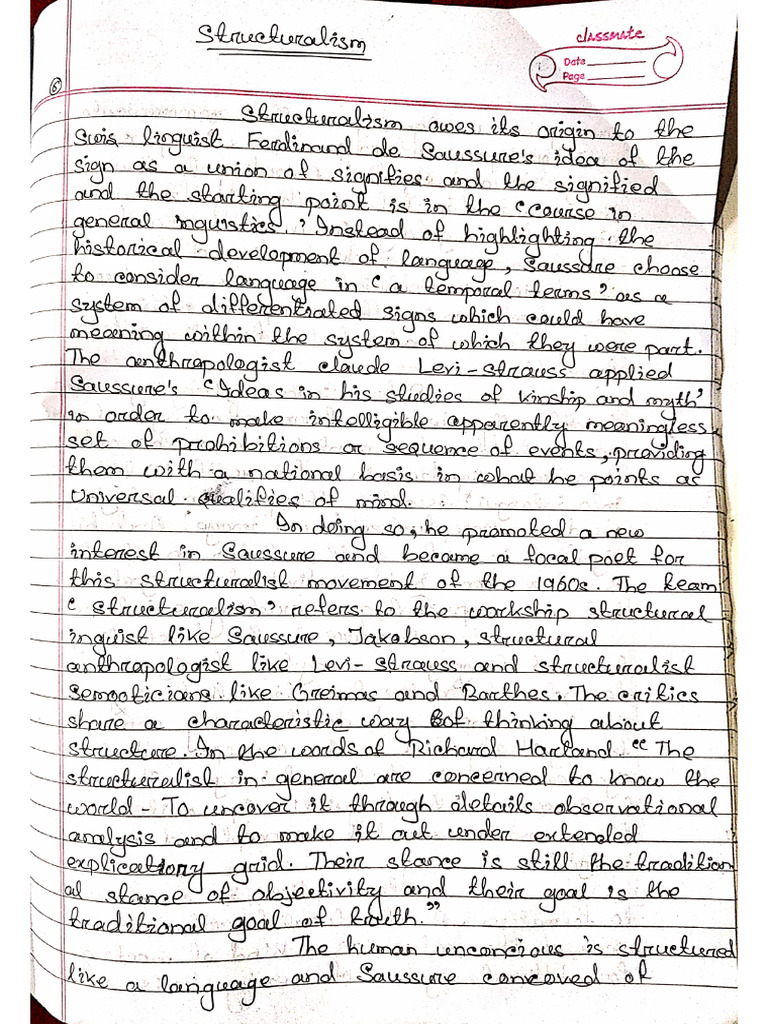 Structuralism
classmate
Date
Page
6
Structuralism owes its origin to the
Swis linguist Ferdinand de Saussure's idea of the
sign as a union of signifies and the signified
and the starting point is in the "Course in
general nguistics.' Instead of highlighting the
historical development of language, Saussure choose
to consider language in 'a temporal terms' as a
system of differentrated signs which could have
meaning within the system of which they were part.
The anthropologist claude Levi-strauss applied
Saussure's 'Ideas in his studies of kinship and myth'
in order to make intelligible apparently meaningless
set of prohibitions or sequence of events, providing
them with a national basis in what he points as
Universal qualifies of mind.
In doing so, he promoted a new
interest in Saussure and became a focal poet for
this structuralist movement of the 1960s. The team
'structuralism' refers to the workship structural
inguist like Saussure, Jakobson, structural
anthropologist like Levi-strauss and structuralist
semooticians like Greimas and Barthes. The critics
share a characteristic way of thinking about
structure. In the words of Richard Harland. "The
structuralist in general are concerned to know the
world - To uncover it through details observational
analysis and to make it out under extended
explicationy grid. Their stance is still the tradition
al stance of objectivity and their goal is the
traditional goal of truth."
The human unconcious is structured
like a language and Saussure concoved of